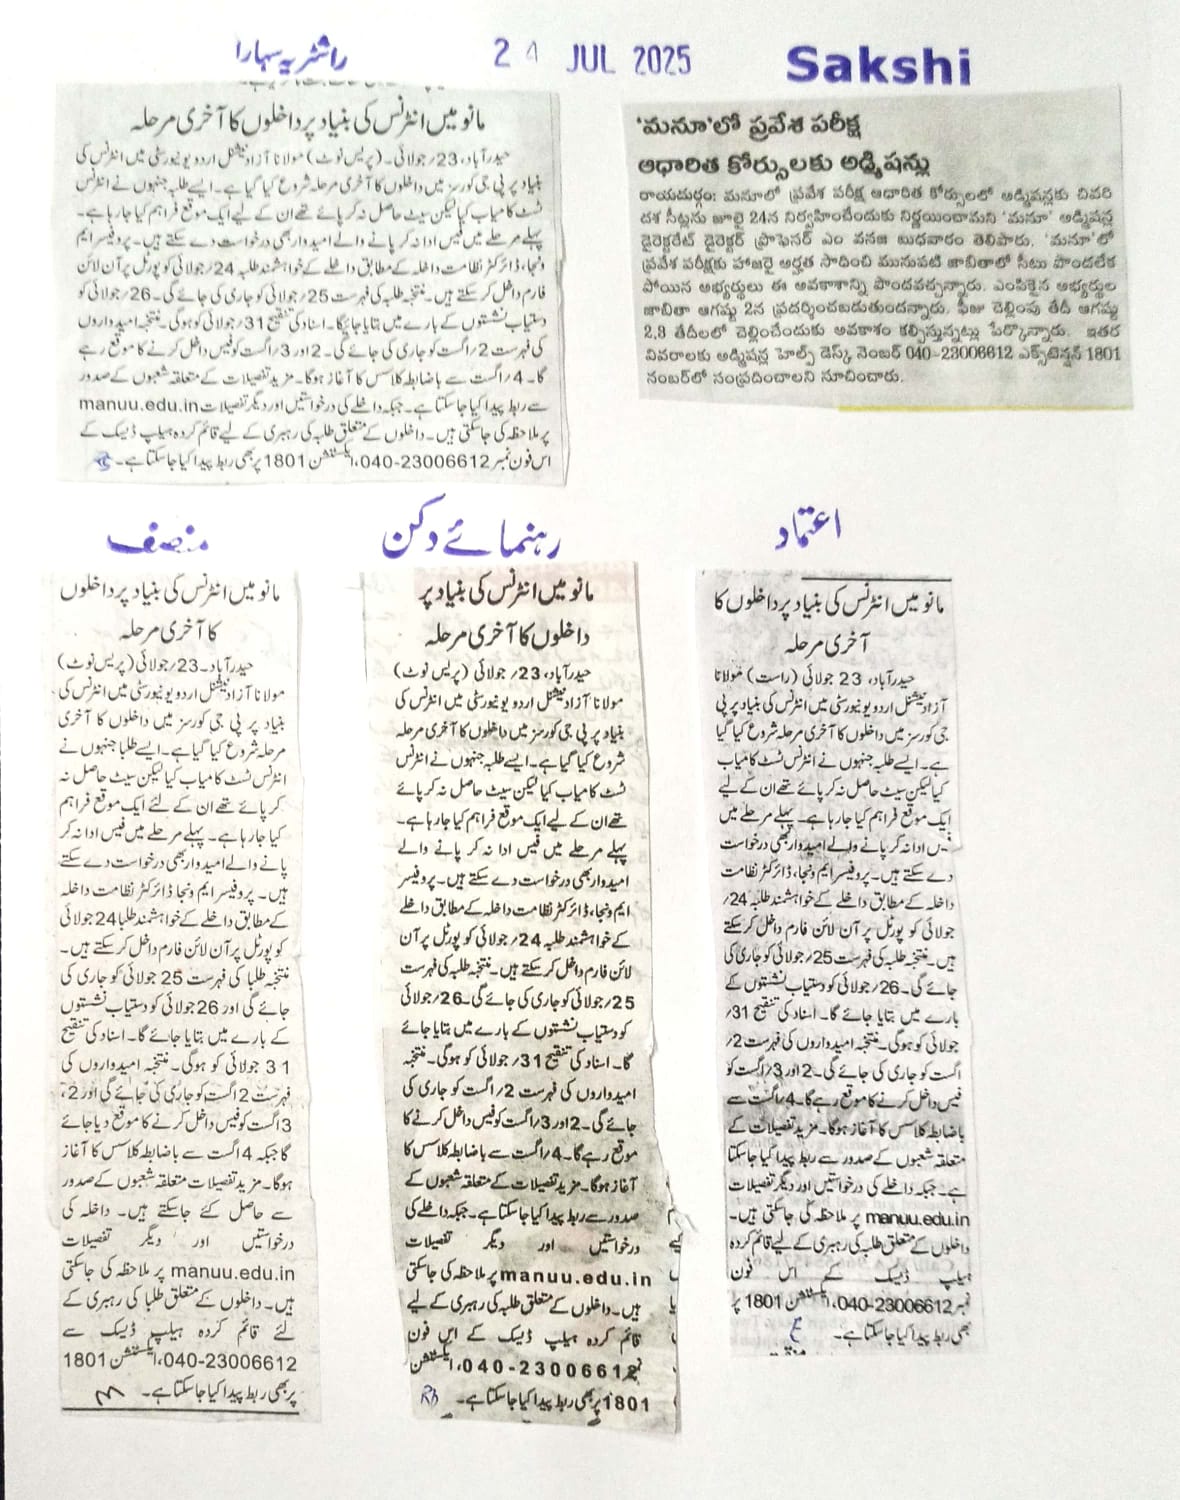 راشٹریہ سہارا
24 JUL 2025
Sakshi
مانو میں انٹرنس کی بنیاد پر داخلوں کا آخری مرحلہ
حیدرآباد، 23؍ جولائی۔ (پریس نوٹ) مولانا آزاد نیشنل اردو یونیورسٹی میں انٹرنس کی
بنیاد پر پی جی کورسز میں داخلوں کا آخری مرحلہ شروع کیا گیا ہے۔ ایسے طلبہ جنہوں نے انٹرنس
ٹسٹ کامیاب کیا لیکن سیٹ حاصل نہ کر پائے تھے ان کے لیے ایک موقع فراہم کیا جا رہا ہے۔
پہلے مرحلے میں فیس ادا نہ کر پانے والے امیدوار بھی درخواست دے سکتے ہیں۔ پروفیسر ایم
ونجا، ڈائرکٹر نظامت داخلہ کے مطابق داخلے کے خواہشمند طلبہ 24؍ جولائی کو پورٹل پر آن لائن
فارم داخل کر سکتے ہیں۔ منتخبہ طلبہ کی فہرست 25؍ جولائی کو جاری کی جائے گی۔ 26؍ جولائی کو
دستیاب نشستوں کے بارے میں بتایا جائیگا۔ اسناد کی تنقیح 31؍ جولائی کو ہوگی۔ منتخبہ امیدواروں
کی فہرست 2؍ اگست کو جاری کی جائے گی۔ 2 اور 3؍ اگست کو فیس داخل کرنے کا موقع رہے
گا۔ 4؍ اگست سے باضابطہ کلاسس کا آغاز ہوگا۔ مزید تفصیلات کے متعلقہ شعبوں کے صدور
سے ربط پیدا کیا جا سکتا ہے۔ جبکہ داخلے کی درخواستیں اور دیگر تفصیلات manuu.edu.in
پر ملاحظہ کی جا سکتی ہیں۔ داخلوں کے متعلق طلبہ کی رہبری کے لیے قائم کردہ ہیلپ ڈیسک کے
اس فون نمبر 040-23006612، ایکسٹنشن 1801 پر بھی ربط پیدا کیا جا سکتا ہے۔
'మనూ'లో ప్రవేశ పరీక్ష
ఆధారిత కోర్సులకు అడ్మిషన్లు
రాయదుర్గం: మనూలో ప్రవేశ పరీక్ష ఆధారిత కోర్సులలో అడ్మిషన్లకు చివరి
దశ సీట్లను జూలై 24న నిర్వహించేందుకు నిర్ణయించామని 'మనూ' అడ్మిషన్ల
డైరెక్టరేట్ డైరెక్టర్ ప్రొఫెసర్ ఎం వనజ బుధవారం తెలిపారు. 'మనూ'లో
ప్రవేశ పరీక్షకు హాజరై అర్హత సాధించి మునుపటి జాబితాలో సీటు పొందలేక
పోయిన అభ్యర్థులు ఈ అవకాశాన్ని పొందవచ్చన్నారు. ఎంపికైన అభ్యర్థుల
జాబితా ఆగష్టు 2న ప్రదర్శించబడుతుందన్నారు. ఫీజు చెల్లింపు తేదీ ఆగష్టు
2,3 తేదీలలో చెల్లించేందుకు అవకాశం కల్పిస్తున్నట్లు పేర్కొన్నారు. ఇతర
వివరాలకు అడ్మిషన్ల హెల్ప్ డెస్క్ నెంబర్ 040-23006612 ఎక్స్‌టెన్షన్ 1801
నంబర్‌లో సంప్రదించాలని సూచించారు.
منصف
مانو میں انٹرنس کی بنیاد پر داخلوں
کا آخری مرحلہ
حیدرآباد۔ 23؍ جولائی (پریس نوٹ)
مولانا آزاد نیشنل اردو یونیورسٹی میں انٹرنس کی
بنیاد پر پی جی کورسز میں داخلوں کا آخری
مرحلہ شروع کیا گیا ہے۔ ایسے طلبا جنہوں نے
انٹرنس ٹسٹ کامیاب کیا لیکن سیٹ حاصل نہ
کر پائے تھے ان کے لئے ایک موقع فراہم
کیا جا رہا ہے۔ پہلے مرحلے میں فیس ادا نہ کر
پانے والے امیدوار بھی درخواست دے سکتے
ہیں۔ پروفیسر ایم ونجا ڈائرکٹر نظامت داخلہ
کے مطابق داخلے کے خواہشمند طلبا 24 جولائی
کو پورٹل پر آن لائن فارم داخل کر سکتے ہیں۔
منتخبہ طلبا کی فہرست 25 جولائی کو جاری کی
جائے گی اور 26 جولائی کو دستیاب نشستوں
کے بارے میں بتایا جائے گا۔ اسناد کی تنقیح
31 جولائی کو ہوگی۔ منتخبہ امیدواروں کی
فہرست 2 اگست کو جاری کی جائے گی اور 2،
3 اگست کو فیس داخل کرنے کا موقع دیا جائے
گا جبکہ 4 اگست سے باضابطہ کلاسس کا آغاز
ہوگا۔ مزید تفصیلات متعلقہ شعبوں کے صدور
سے حاصل کئے جا سکتے ہیں۔ داخلہ کی
درخواستیں اور دیگر تفصیلات
manuu.edu.in پر ملاحظہ کی جا سکتی
ہیں۔ داخلوں کے متعلق طلبا کی رہبری کے
لئے قائم کردہ ہیلپ ڈیسک سے
040-23006612، ایکسٹنشن 1801
پر بھی ربط پیدا کیا جا سکتا ہے۔
رہنمائے دکن
مانو میں انٹرنس کی بنیاد پر
داخلوں کا آخری مرحلہ
حیدرآباد، 23؍ جولائی (پریس نوٹ)
مولانا آزاد نیشنل اردو یونیورسٹی میں انٹرنس کی
بنیاد پر پی جی کورسز میں داخلوں کا آخری مرحلہ
شروع کیا گیا ہے۔ ایسے طلبہ جنہوں نے انٹرنس
ٹسٹ کامیاب کیا لیکن سیٹ حاصل نہ کر پائے
تھے ان کے لیے ایک موقع فراہم کیا جا رہا ہے۔
پہلے مرحلے میں فیس ادا نہ کر پانے والے
امیدوار بھی درخواست دے سکتے ہیں۔ پروفیسر
ایم ونجا، ڈائرکٹر نظامت داخلہ کے مطابق داخلے
کے خواہشمند طلبہ 24؍ جولائی کو پورٹل پر آن
لائن فارم داخل کر سکتے ہیں۔ منتخبہ طلبہ کی فہرست
25؍ جولائی کو جاری کی جائے گی۔ 26؍ جولائی
کو دستیاب نشستوں کے بارے میں بتایا جائے
گا۔ اسناد کی تنقیح 31؍ جولائی کو ہوگی۔ منتخبہ
امیدواروں کی فہرست 2؍ اگست کو جاری کی
جائے گی۔ 2 اور 3؍ اگست کو فیس داخل کرنے کا
موقع رہے گا۔ 4؍ اگست سے باضابطہ کلاسس کا
آغاز ہوگا۔ مزید تفصیلات کے متعلقہ شعبوں کے
صدور سے ربط پیدا کیا جا سکتا ہے۔ جبکہ داخلے کی
درخواستیں اور دیگر تفصیلات
manuu.edu.in پر ملاحظہ کی جا سکتی
ہیں۔ داخلوں کے متعلق طلبہ کی رہبری کے لیے
قائم کردہ ہیلپ ڈیسک کے اس فون
نمبر 040-23006612، ایکسٹنشن
1801 پر بھی ربط پیدا کیا جا سکتا ہے۔
Rb
اعتماد
مانو میں انٹرنس کی بنیاد پر داخلوں کا
آخری مرحلہ
حیدرآباد، 23 جولائی (راست) مولانا
آزاد نیشنل اردو یونیورسٹی میں انٹرنس کی بنیاد پر پی
جی کورسز میں داخلوں کا آخری مرحلہ شروع کیا گیا
ہے۔ ایسے طلبہ جنہوں نے انٹرنس ٹسٹ کامیاب
کیا لیکن سیٹ حاصل نہ کر پائے تھے ان کے لیے
ایک موقع فراہم کیا جا رہا ہے۔ پہلے مرحلے میں
فیس ادا نہ کر پانے والے امیدوار بھی درخواست
دے سکتے ہیں۔ پروفیسر ایم ونجا، ڈائرکٹر نظامت
داخلہ کے مطابق داخلے کے خواہشمند طلبہ 24؍
جولائی کو پورٹل پر آن لائن فارم داخل کر سکتے
ہیں۔ منتخبہ طلبہ کی فہرست 25؍ جولائی کو جاری کی
جائے گی۔ 26؍ جولائی کو دستیاب نشستوں کے
بارے میں بتایا جائے گا۔ اسناد کی تنقیح 31؍
جولائی کو ہوگی۔ منتخبہ امیدواروں کی فہرست 2؍
اگست کو جاری کی جائے گی۔ 2 اور 3؍ اگست کو
فیس داخل کرنے کا موقع رہے گا۔ 4؍ اگست سے
باضابطہ کلاسس کا آغاز ہوگا۔ مزید تفصیلات کے
متعلقہ شعبوں کے صدور سے ربط پیدا کیا جا سکتا
ہے۔ جبکہ داخلے کی درخواستیں اور دیگر تفصیلات
manuu.edu.in پر ملاحظہ کی جا سکتی ہیں۔
داخلوں کے متعلق طلبہ کی رہبری کے لیے قائم کردہ
ہیلپ ڈیسک کے اس فون
نمبر 040-23006612، ایکسٹنشن 1801 پر
بھی ربط پیدا کیا جا سکتا ہے۔